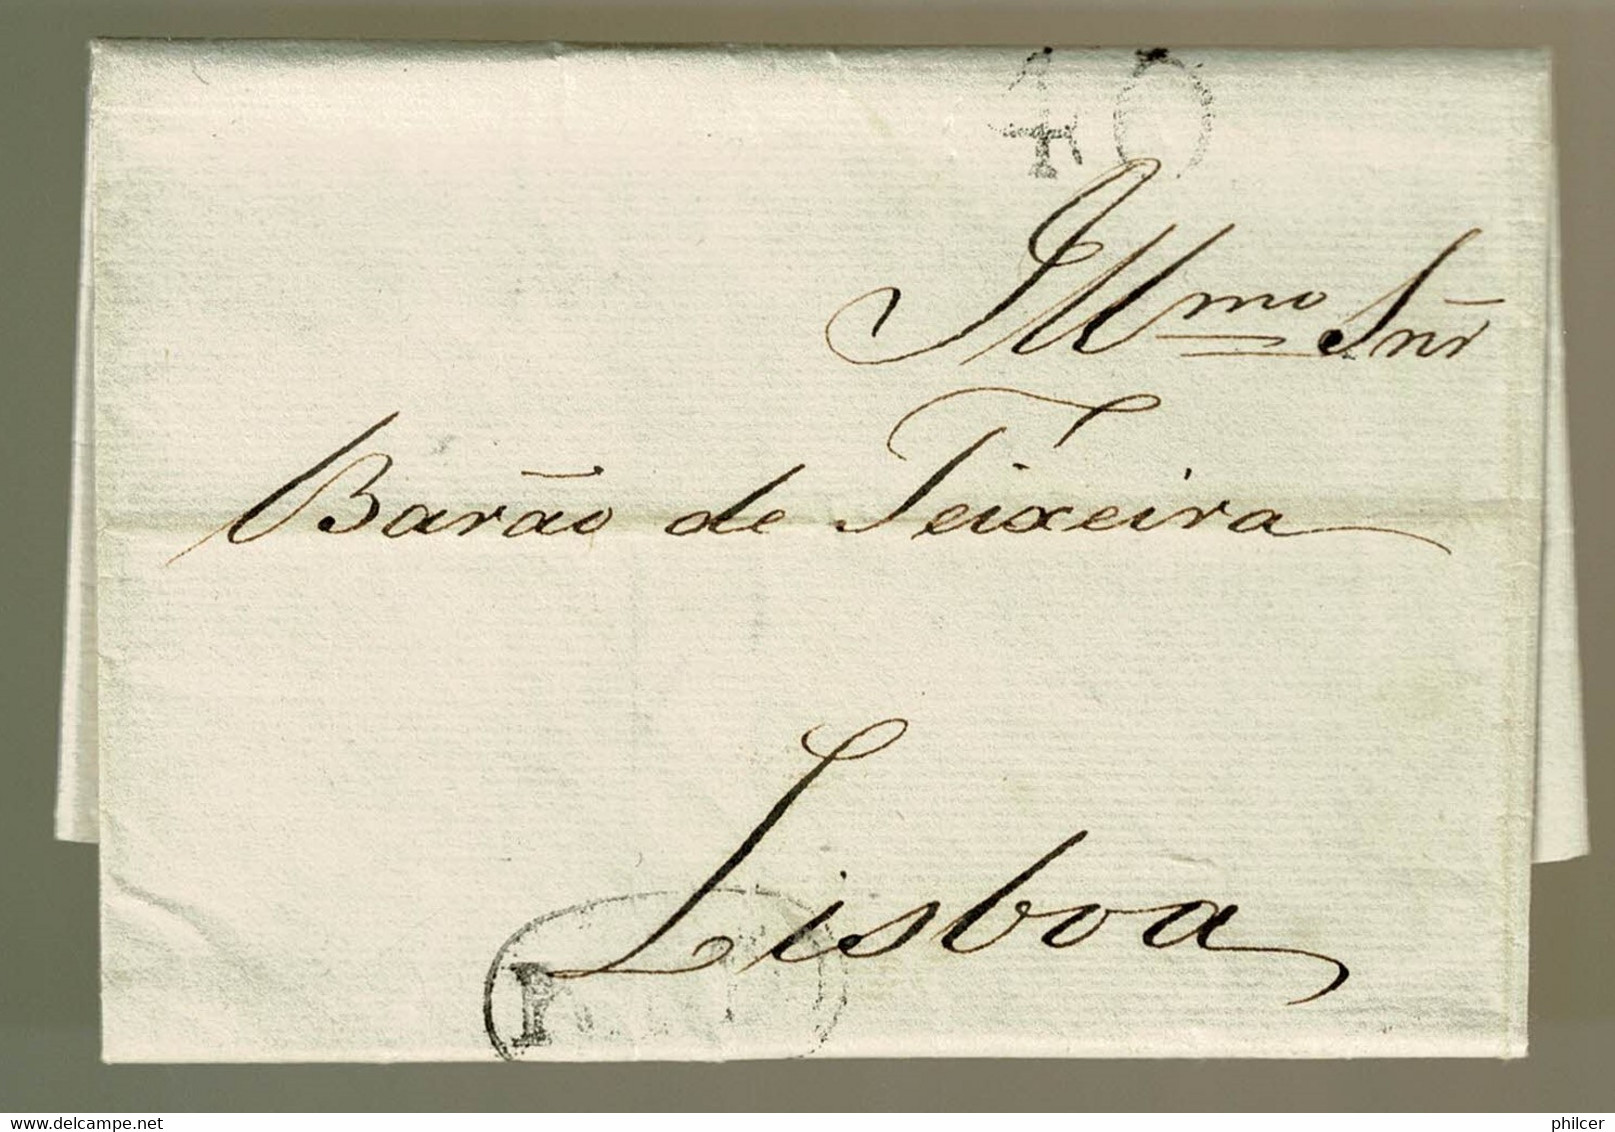 40
Illmo Snr̃
Barão de Teixeira
Lisboa
www.delcampe.net
philcer